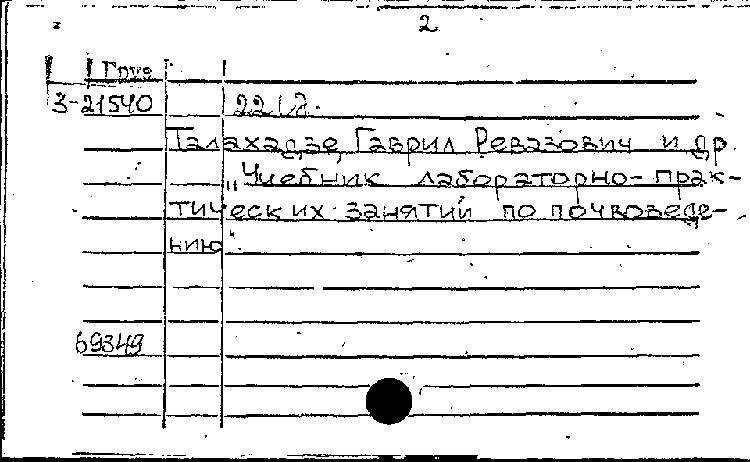 2
Груз
3-21540
Талахадзе Гаврил Ревазович и др.
„Учебник лабораторно-прак-
тических занятий по почвоведе-
нию".
69349